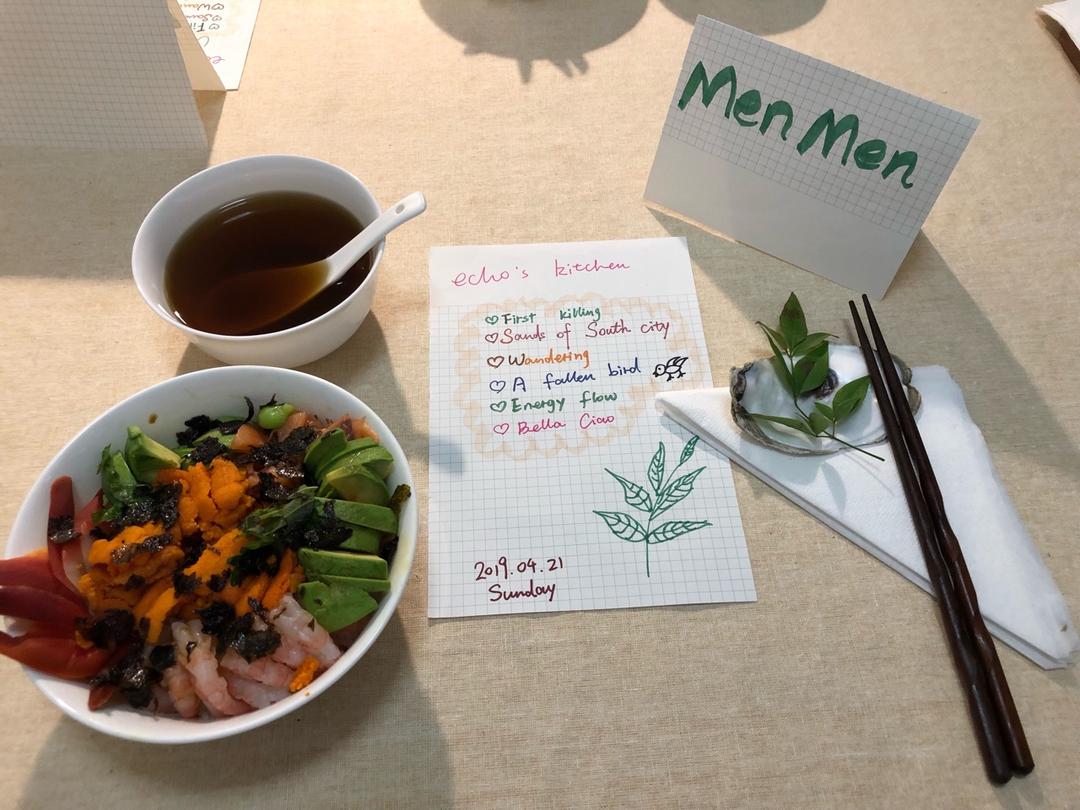 Men Men
echo's kitchen
♡ First killing
♡ Sands of South city
♡ Wandering
♡ A fallen bird
♡ Energy flow
♡ Bella Ciao
2019.04.21
Sunday